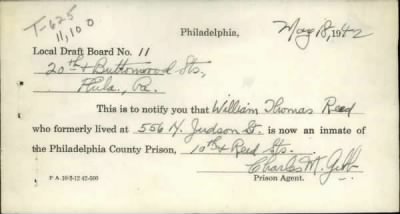 T-625
11,100
Philadelphia, May 18, 1942
Local Draft Board No. 11
20th & Buttonwood Sts,
Phila, Pa.
This is to notify you that William Thomas Reed
who formerly lived at 556 N. Judson St. is now an inmate of
the Philadelphia County Prison, 10th & Reed Sts.
Charles M. Gibb
Prison Agent.
P A 10-3-12-42-500